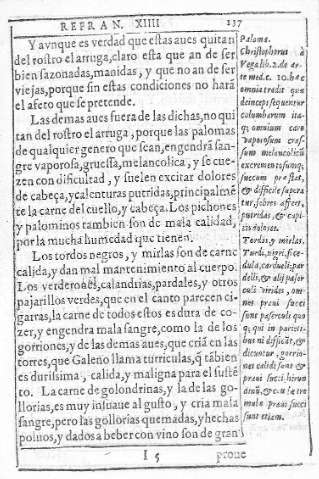 REFRAN. XIIII
237
Y avnque es verdad que estas aues quitan
del rostro el arruga, claro esta que an de ser
bien sazonadas, manidas, y que no an de ser
viejas, porque sin estas condiciones no hará
el afeto que se pretende.
Las demas aues fuera de las dichas, no qui
tan del rostro el arruga, porque las palomas
de qualquier genero que sean, engendrã san-
gre vaporosa, gruessa, melancolica, y se cue-
zen con dificultad, y suelen excitar dolores
de cabeça, y calenturas putridas, principalmẽ
te la carne del cuello, y cabeça. Los pichones
y palominos tambien son de mala calidad,
por la mucha humedad que tienen.
Los tordos negros, y mirlas son de carne
calida, y dan mal mantenimiento al cuerpo.
Los verderones, calandrias, pardales, y otros
pajarillos verdes, que en el canto parecen ci-
garras, la carne de todos estos es dura de co-
zer, y engendra mala sangre, como la de los
gorriones, y de las demas aues, que criã en las
torres, que Galeno llama turriculas, q̃ tãbien
es durissima, calida, y maligna para el susté
to. La carne de golondrinas, y la de las go-
llorias, es muy insuaue al gusto, y cria mala
sangre, pero las gollorias quemadas, y hechas
poluos, y dados a beber con vino son de gran
I 5
proue
Palomæ.
Christophorus à
Vega lib. 2. de ar-
te med. c. 10. hæc
omnia tradit quæ
deinceps sequuntur
columbarum ita-
q; omnium caro
vaporosum cras-
sum melancolicũ
succum præstat,
& difficile supera
tur, febres affert,
putridas, & capi-
tis dolores.
Tordas, y mielas.
Turdi, nigri, fice-
dula, cardueli, par
delli, & alij passer
culi virides, om-
nes praui succi
sunt
q; qui in parieti-
bus nidificãt, &
dicuntur, gorrio-
nes calidi sunt &
praui succi, hirun
praui succi
sunt etiam.